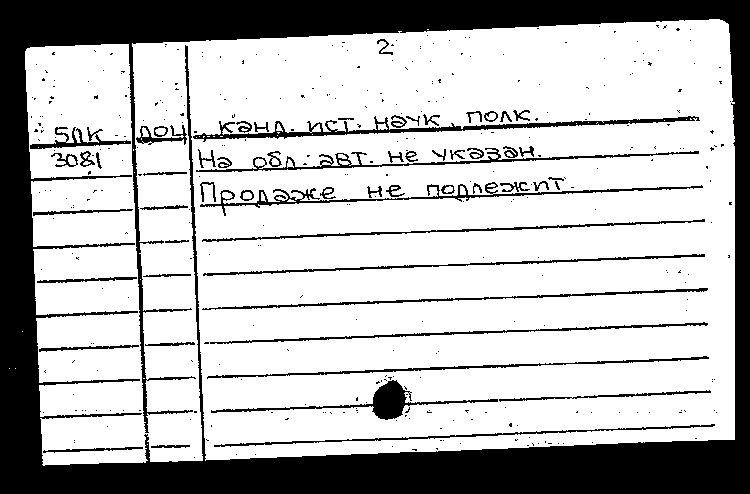 2
БЛК доц., канд. ист. наук, полк.
3081 На обл. авт. не указан.
Продаже не подлежит.